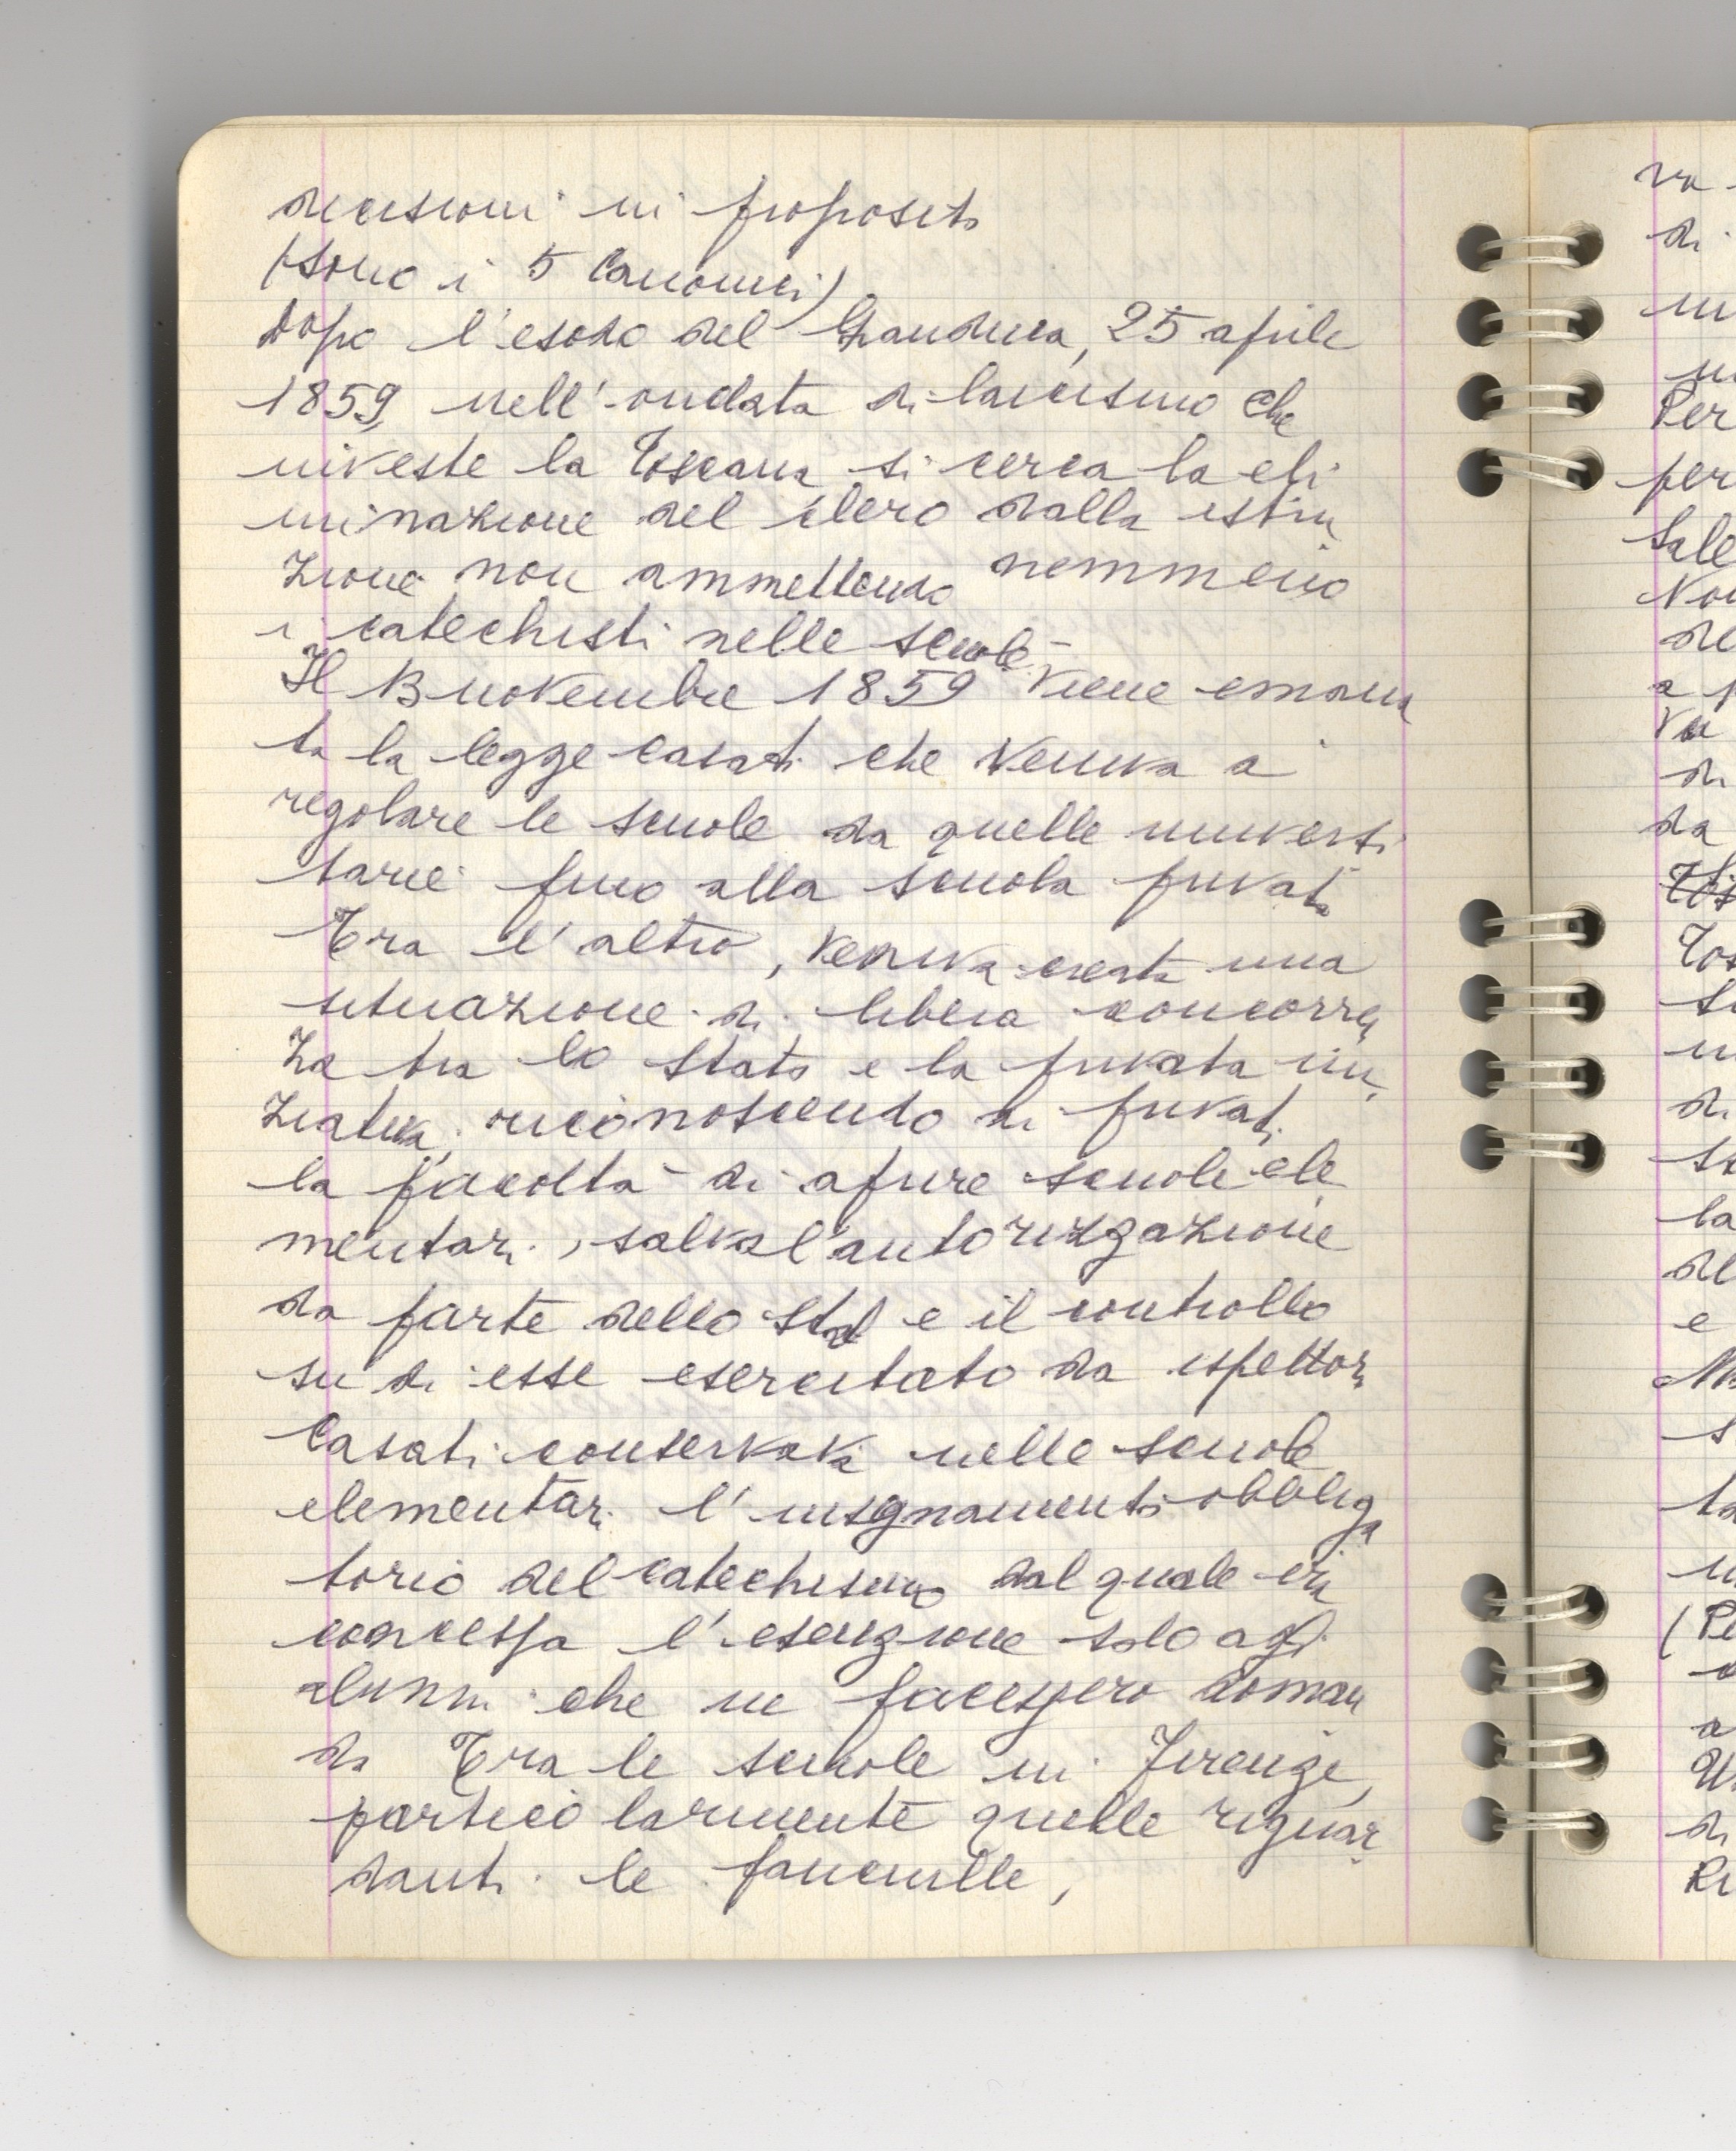 decisioni in proposito
(sono i 5 Canonici)
dopo l'esodo del Granduca, 25 aprile
1859, nell'ondata di laicismo che
investe la Toscana si cerca la eli
minazione del clero dalla istru
zione non ammettendo nemmeno
i catechisti nelle scuole
Il 13 novembre 1859 viene emana
ta la legge Casati che veniva a
regolare le scuole da quelle universi
tarie fino alla scuola privata
Tra l'altro, veniva creata una
situazione di libera concorren
za tra lo Stato e la privata ini
ziativa, riconoscendo ai privati
la facoltà di aprire scuole ele
mentari, salva l'autorizzazione
da parte dello Stato e il controllo
su di esse esercitato da ispettori
Casati conservava nelle scuole
elementari l'insegnamento obbliga
torio del catechismo dal quale era
concessa l'esenzione solo agli
alunni che ne facessero doman
da Tra le scuole in Firenze,
particolarmente quelle riguar
danti le fanciulle,
va
di
Per
per
Sale
Non
de
a p
da
Tos
di
la
e
s
(Pe
a
di